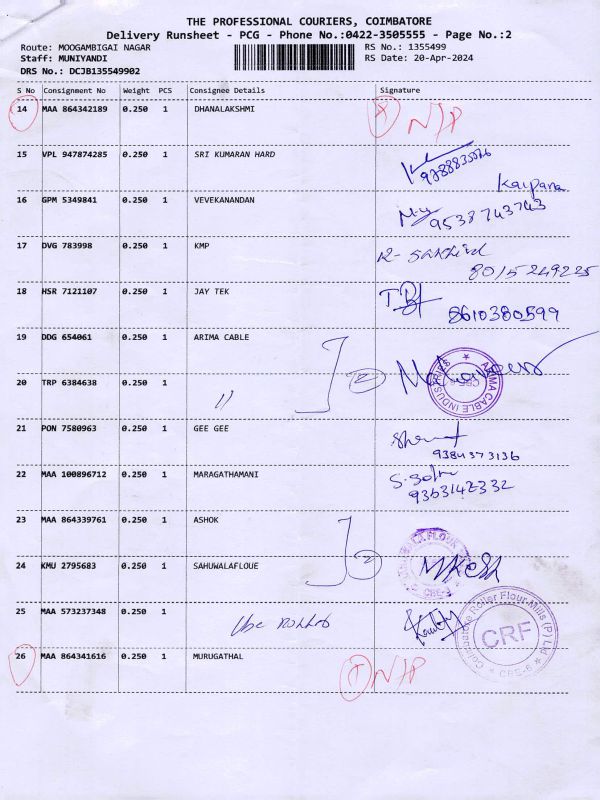 THE PROFESSIONAL COURIERS, COIMBATORE
Delivery Runsheet - PCG - Phone No.:0422-3505555 - Page No.:2
Route: MOOGAMBIGAI NAGAR RS No.: 1355499
Staff: MUNIYANDI RS Date: 20-Apr-2024
DRS No.: DCJB135549902
S No Consignment No Weight PCS Consignee Details Signature
14 MAA 864342189 0.250 1 DHANALAKSHMI N/P
15 VPL 947874285 0.250 1 SRI KUMARAN HARD
Kalpana
16 GPM 5349841 0.250 1 VEVEKANANDAN 9538743743
17 DVG 783998 0.250 1 KMP
8015249225
18 HSR 7121107 0.250 1 JAY TEK
8610380599
19 DDG 654061 0.250 1 ARIMA CABLE
ARIMA CABLE INDUSTRIES
20 TRP 6384638 0.250 1 "
21 PON 7580963 0.250 1 GEE GEE
9384373136
22 MAA 100896712 0.250 1 MARAGATHAMANI
9363142332
23 MAA 864339761 0.250 1 ASHOK
24 KMU 2795683 0.250 1 SAHUWALAFLOUE
25 MAA 573237348 0.250 1
Coimbatore Roller Flour Mills (P) Ltd
CRF
CBE-6
26 MAA 864341616 0.250 1 MURUGATHAL N/P